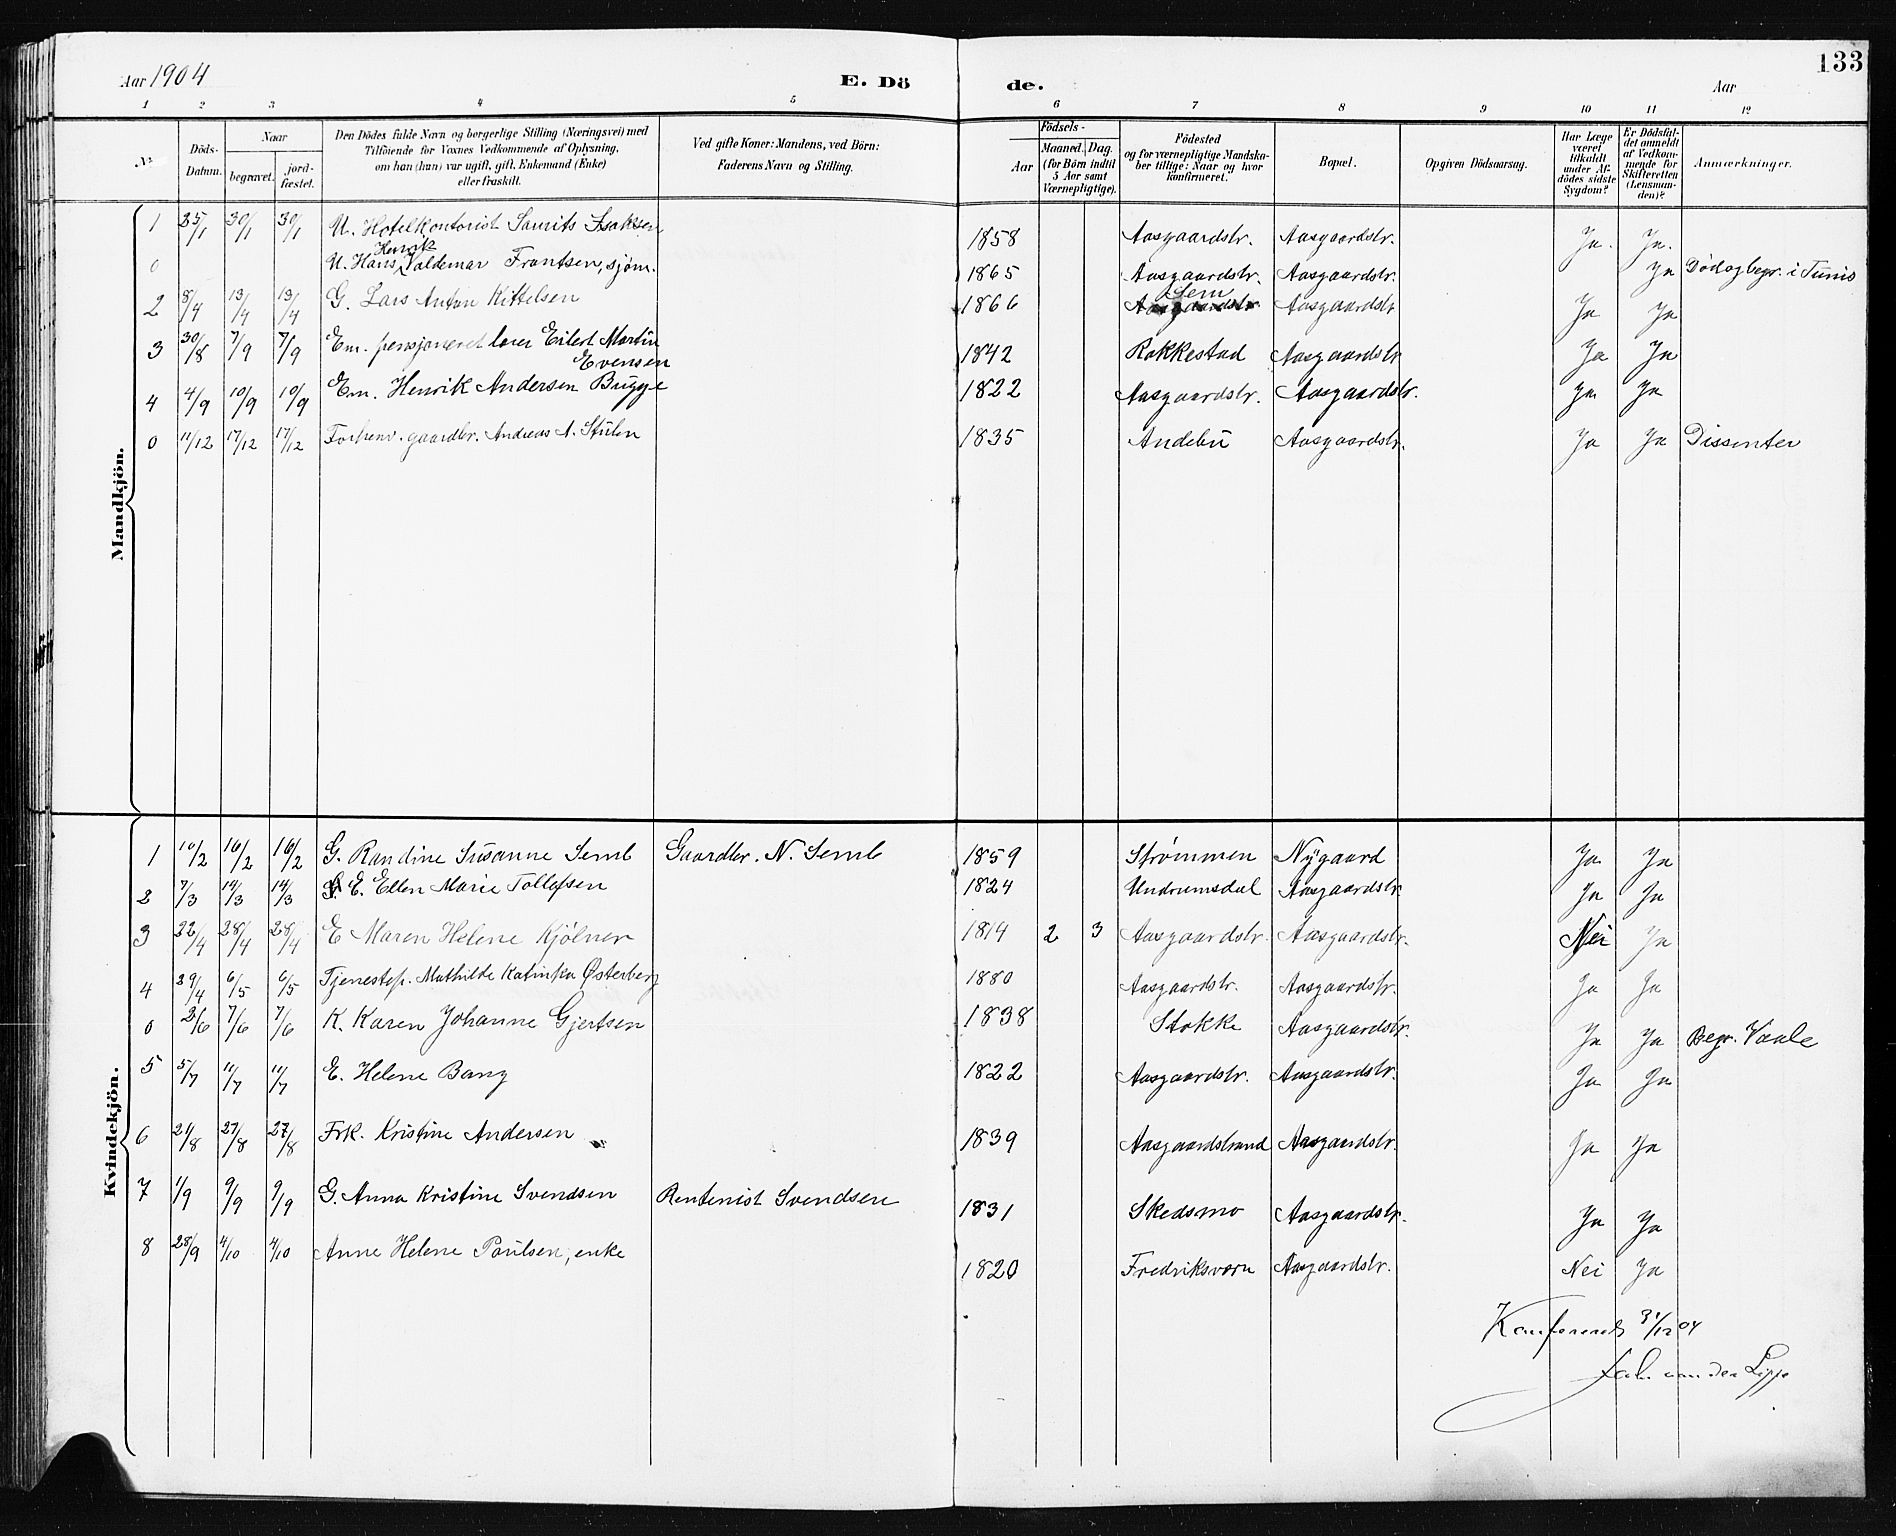 133
Aar 1904 E. Dö de. Aar
1 2 3 4 5 6 7 8 9 10 11 12
№ Döds-Datum. Naar begravet. jord-fæstet.
Den Dödes fulde Navn og borgerlige Stilling (Næringsvei) med
Tilföiende for Voxnes Vedkommende af Oplysning,
om han (hun) var ugift, gift, Enkemand (Enke)
eller fraskilt.
Ved gifte Koner: Mandens, ved Börn:
Faderens Navn og Stilling.
Födsels-
Aar Maaned. Dag.
(for Börn indtil
5 Aar samt
Værnepligtige).
Födested
og for værnepligtige Mandska-
ber tillige: Naar og hvor
konfirmeret.
Bopæl.
Opgiven Dödsaarsag.
Har Læge
været
tilkaldt
under Af-
dödes sidste
Sygdom?
Er Dödsfal-
det anmeldt
af Vedkom-
mende for
Skifteretten
(Lensman-
den)?
Anmærkninger.
Mandkjön.
1 25/1 30/1 30/1 U. Hotelkontorist Laurits Isaksen 1858 Aasgaardstr. Aasgaardstr. Ja. Ja.
Henrik
0 U. Hans Valdemar Frantsen, sjøm. 1865 Aasgaardstr. Aasgaardstr. Ja Død og begr. i Tunis
Sem
2 8/4 13/4 13/4 G. Lars Anton Kittelsen 1866 Aasgaardstr. Aasgaardstr Ja Ja
3 30/8 7/9 7/9 Em. pensjoneret lærer Eilert Martin
Evensen 1842 Rakkestad Aasgaardstr Ja Ja
4 4/9 10/9 10/9 Em. Henrik Andersen Bugge 1822 Aasgaardstr. Aasgaardstr. Ja Ja
0 11/12 17/12 17/12 Forhenv. gaardbr. Andreas A. Stulen 1835 Andebu Aasgaardstr. Ja Ja Dissenter
Kvindekjön.
1 10/2 16/2 16/2 G. Randine Susanne Semb Gaardbr. N. Semb 1859 Strømmen Nygaard Ja Ja
2 7/3 14/3 14/3 E. Ellen Marie Tollefsen 1824 Undrumsdal Aasgaardstr Ja Ja
3 22/4 28/4 28/4 E Maren Helene Kjølner 1814 2 3 Aasgaardstr. Aasgaardstr. Nei Ja
4 29/4 6/5 6/5 Tjenestep. Mathilde Katinka Østerberg 1880 Aasgaardstr. Aasgaardstr. Ja Ja
0 2/6 7/6 7/6 K. Karen Johanne Gjertsen 1838 Stokke Aasgaardstr. Ja Ja Begr. Vaale
5 5/7 11/7 11/7 E. Helene Bang 1822 Aasgaardstr. Aasgaardstr. Ja Ja
6 21/8 27/8 27/8 Frk. Kristine Andersen 1839 Aasgaardstrand Aasgaardstr. Ja Ja
7 1/9 9/9 9/9 G. Anna Kristine Svendsen Rentenist Svendsen 1831 Skedsmo Aasgaardstr. Ja Ja
8 28/9 4/10 4/10 Anne Helene Poulsen, enke 1820 Fredriksværn Aasgaardstr. Nei Ja
Konfereret 31/12 04
Jak. van der Lippe